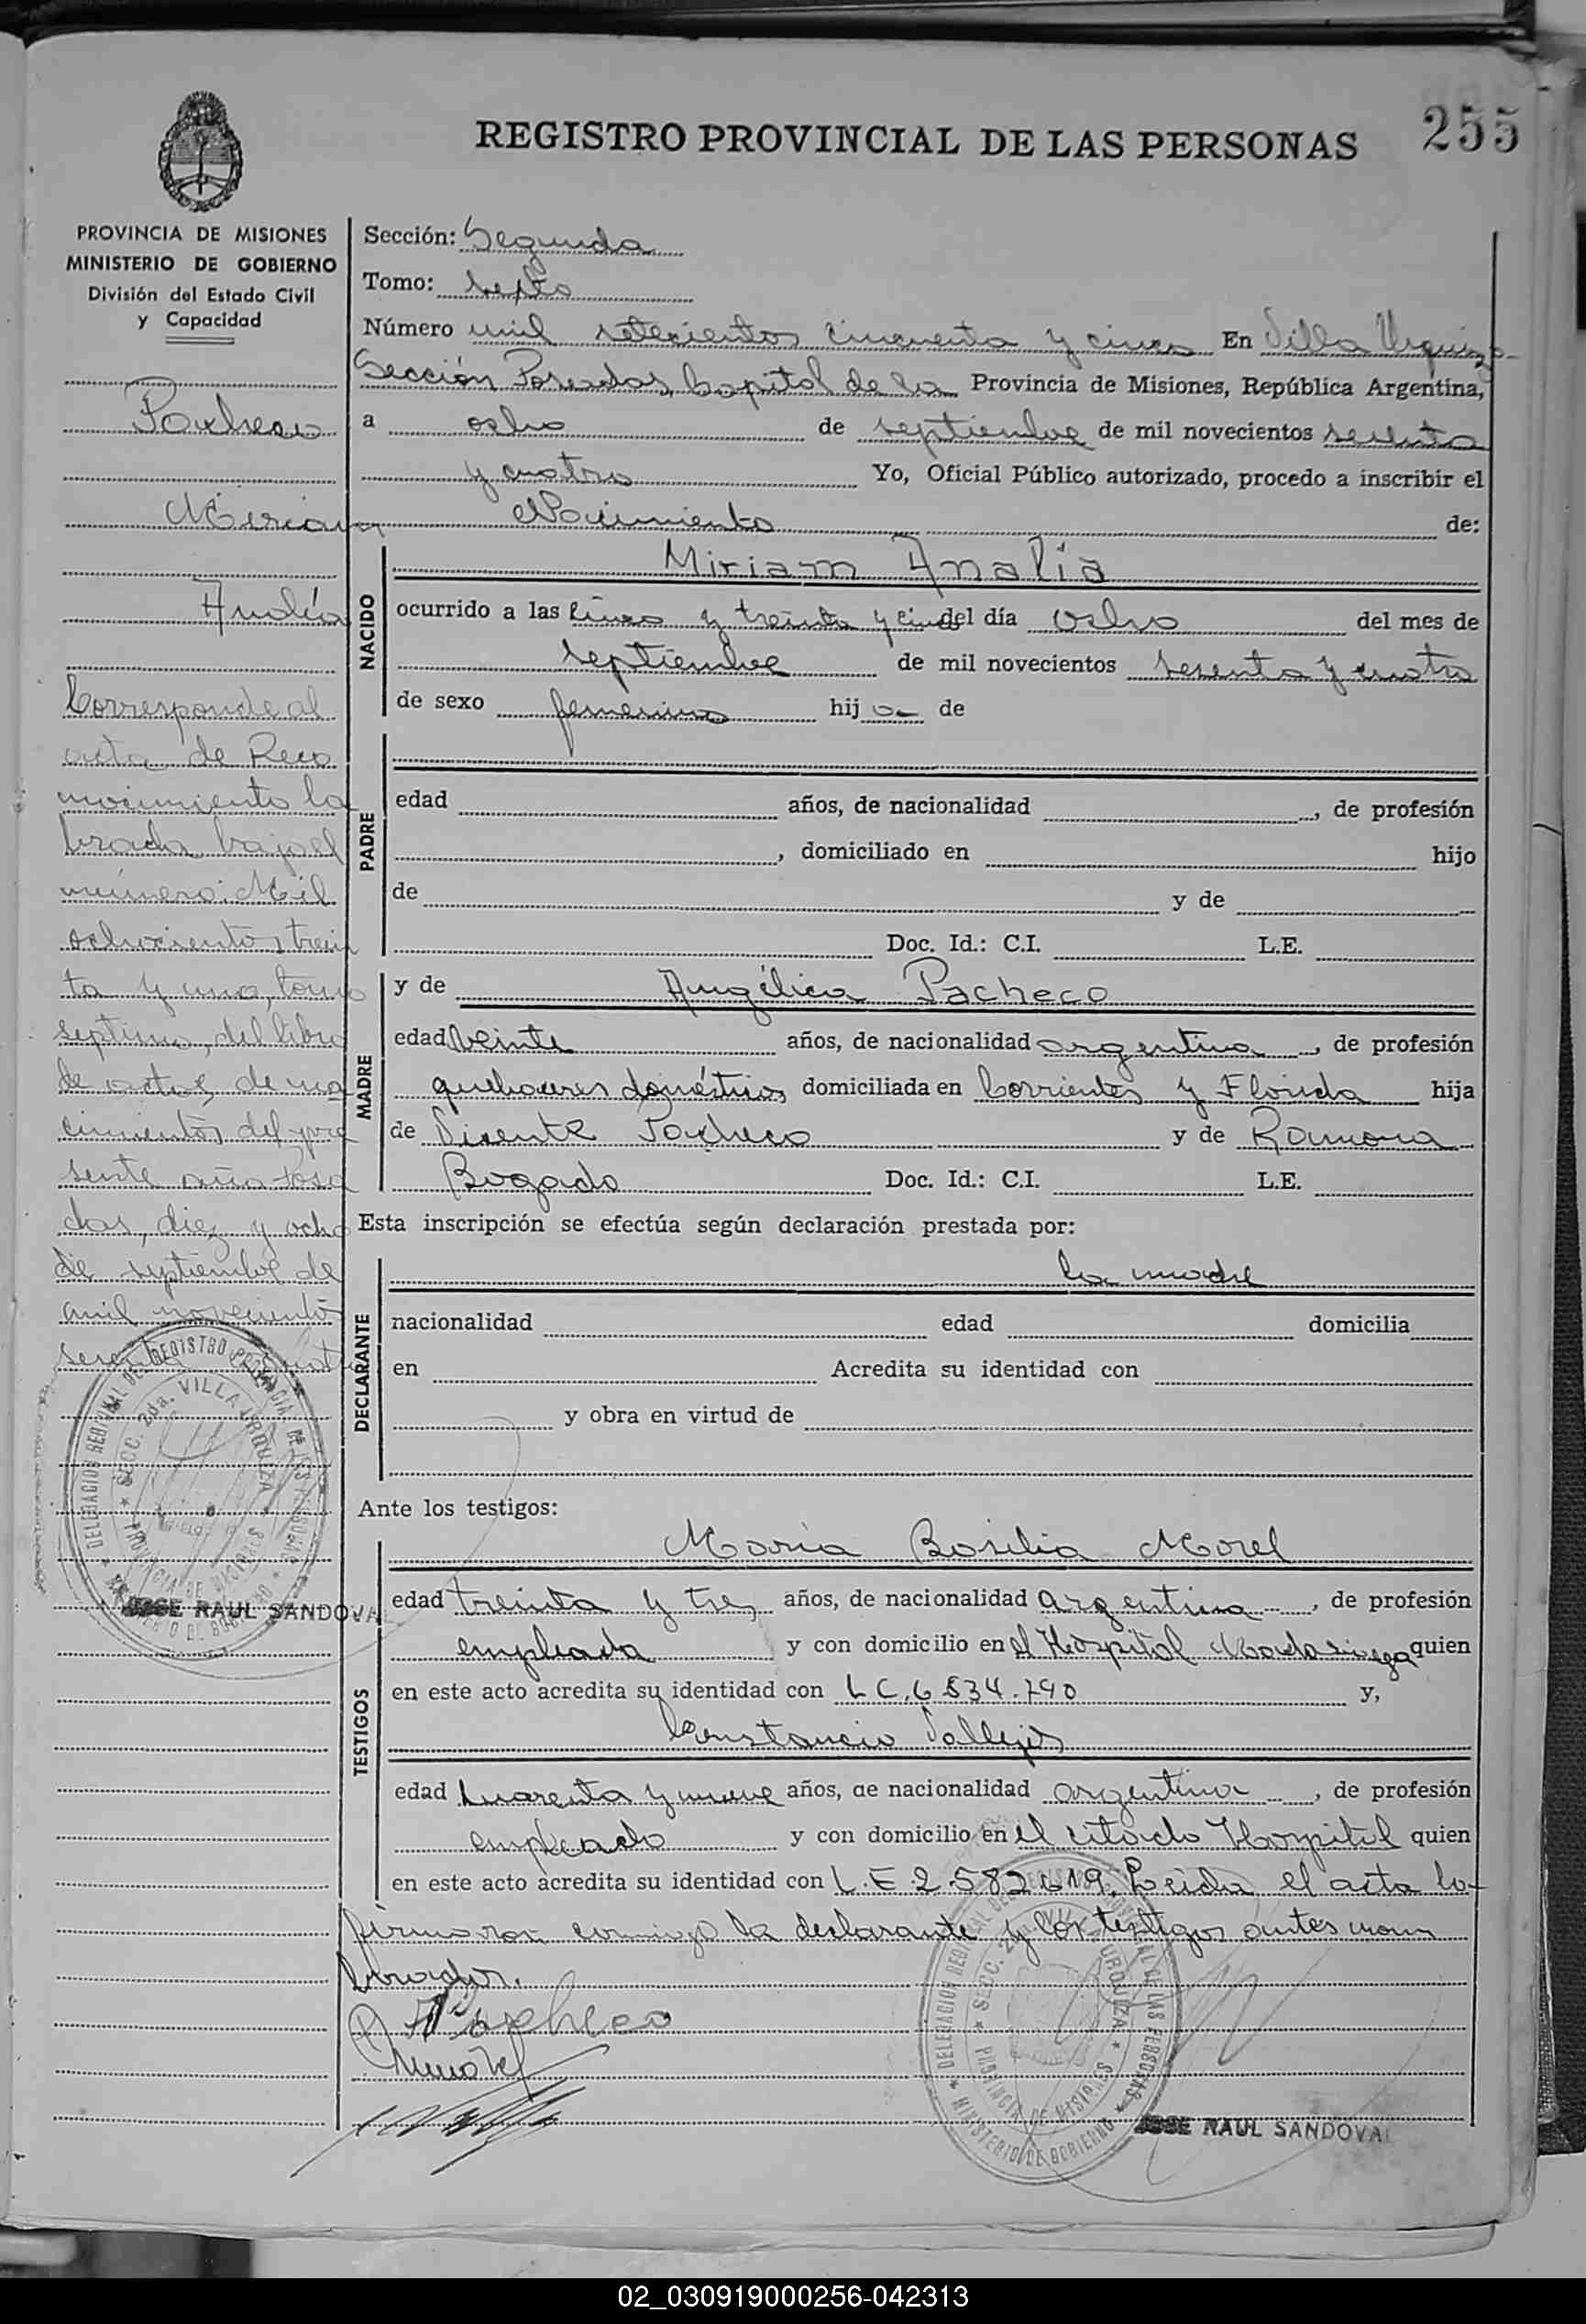 255
REGISTRO PROVINCIAL DE LAS PERSONAS
PROVINCIA DE MISIONES
MINISTERIO DE GOBIERNO
División del Estado Civil
y Capacidad
Pacheco
Miriam
Analía
Corresponde al
acta de Reco
nocimiento la
brada bajo el
número: Mil
ochocientos trein
ta y uno, tomo
septimo, del libro
de actas, de na
cimientos del pre
sente año Posa
das, diez y ocho
de septiembre de
mil novecientos
sesenta y cuatro
DELEGACION REGIONAL DEL REGISTRO PROVINCIAL DE LAS PERSONAS
SECC. 2da. VILLA URQUIZA
PROVINCIA DE MISIONES
MINISTERIO DE GOBIERNO
JOSE RAUL SANDOVAL
Sección: Segunda
Tomo: sexto
Número mil setecientos cincuenta y cinco En Villa Urquiza-
Sección Posadas, Capital de la Provincia de Misiones, República Argentina,
a ocho de septiembre de mil novecientos sesenta
y cuatro Yo, Oficial Público autorizado, procedo a inscribir el
Nacimiento de:
NACIDO
Miriam Analía
ocurrido a las cinco y treinta y cinco del día ocho del mes de
septiembre de mil novecientos sesenta y cuatro
de sexo femenino hija de
PADRE
edad años, de nacionalidad , de profesión
, domiciliado en hijo
de y de
Doc. Id.: C.I. L.E.
MADRE
y de Angélica Pacheco
edad Veinte años, de nacionalidad argentina , de profesión
quehaceres domésticos domiciliada en Corrientes y Florida hija
de Visente Pacheco y de Ramona
Bogado Doc. Id.: C.I. L.E.
Esta inscripción se efectúa según declaración prestada por:
DECLARANTE
la madre
nacionalidad edad domicilia
en Acredita su identidad con
y obra en virtud de
Ante los testigos:
TESTIGOS
María Basilia Morel
edad treinta y tres años, de nacionalidad argentina , de profesión
empleada y con domicilio en el Hospital Madariaga quien
en este acto acredita su identidad con L C. 6.834.790 y,
Constancio Vallejos
edad cuarenta y nueve años, de nacionalidad argentina , de profesión
empleado y con domicilio en el citado Hospital quien
en este acto acredita su identidad con L.E 2.582.619. Leida el acta la
firmaron conmigo la declarante y los testigos antes nom
brados.
A Pacheco
DELEGACION REGIONAL DEL REGISTRO PROVINCIAL DE LAS PERSONAS
SECC. 2da. VILLA URQUIZA
PROVINCIA DE MISIONES
MINISTERIO DE GOBIERNO
JOSE RAUL SANDOVAL
02_030919000256-042313